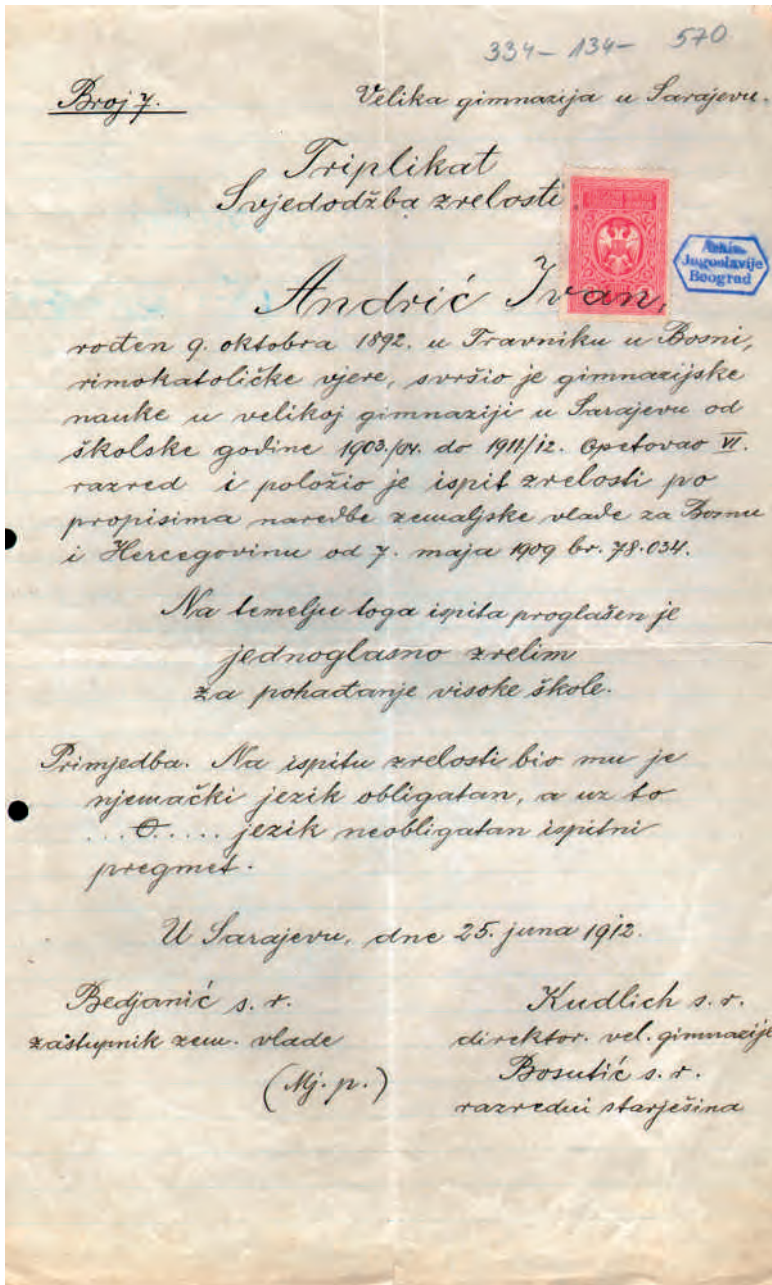 334-134- 570
Broj 7.
Velika gimnazija u Sarajevu.
Triplikat
Svjedodžba zrelosti
Arhiv
Jugoslavije
Beograd
Andrić Ivan,
rođen 9. oktobra 1892. u Travniku u Bosni,
rimokatoličke vjere, svršio je gimnazijske
nauke u velikoj gimnaziji u Sarajevu od
školske godine 1903./04. do 1911/12. Opetovao VI.
razred i položio je ispit zrelosti po
propisima naredbe zemaljske vlade za Bosnu
i Hercegovinu od 7. maja 1909 br. 78.034.
Na temelju toga ispita proglašen je
jednoglasno zrelim
za pohađanje visoke škole.
Primjedba. Na ispitu zrelosti bio mu je
njemački jezik obligatan, a uz to
...0.... jezik neobligatan ispitni
pregmet.
U Sarajevu, dne 25. juna 1912.
Bedjanić s. r.
zastupnik zem. vlade
(Mj. p.)
Kudlich s. r.
direktor. vel. gimnazije
Bosutić s. r.
razredni starješina